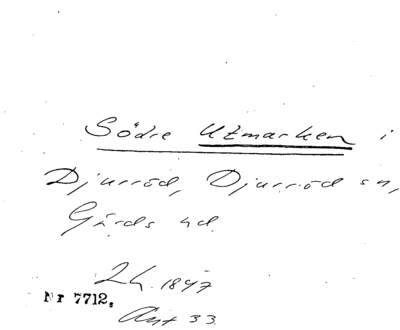 Södre Utmarken i
Djurröd, Djurröd sn,
Gärds hd.
1897
Nr 7712.
33